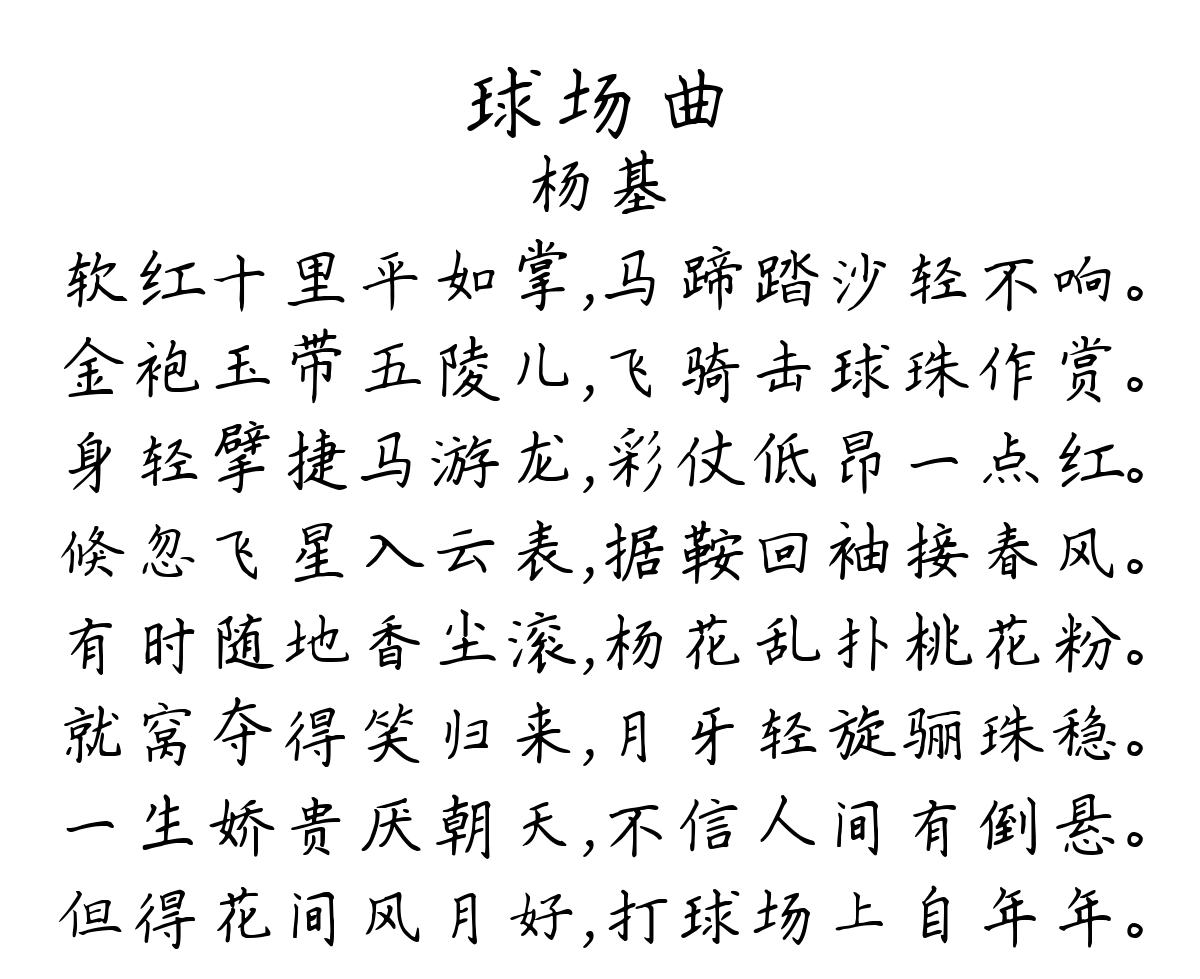 球场曲
杨基
软红十里平如掌,马蹄踏沙轻不响。
金袍玉带五陵儿,飞骑击球珠作赏。
身轻擘捷马游龙,彩仗低昂一点红。
倏忽飞星入云表,据鞍回袖接春风。
有时随地香尘滚,杨花乱扑桃花粉。
就窝夺得笑归来,月牙轻旋骊珠稳。
一生娇贵厌朝天,不信人间有倒悬。
但得花间风月好,打球场上自年年。